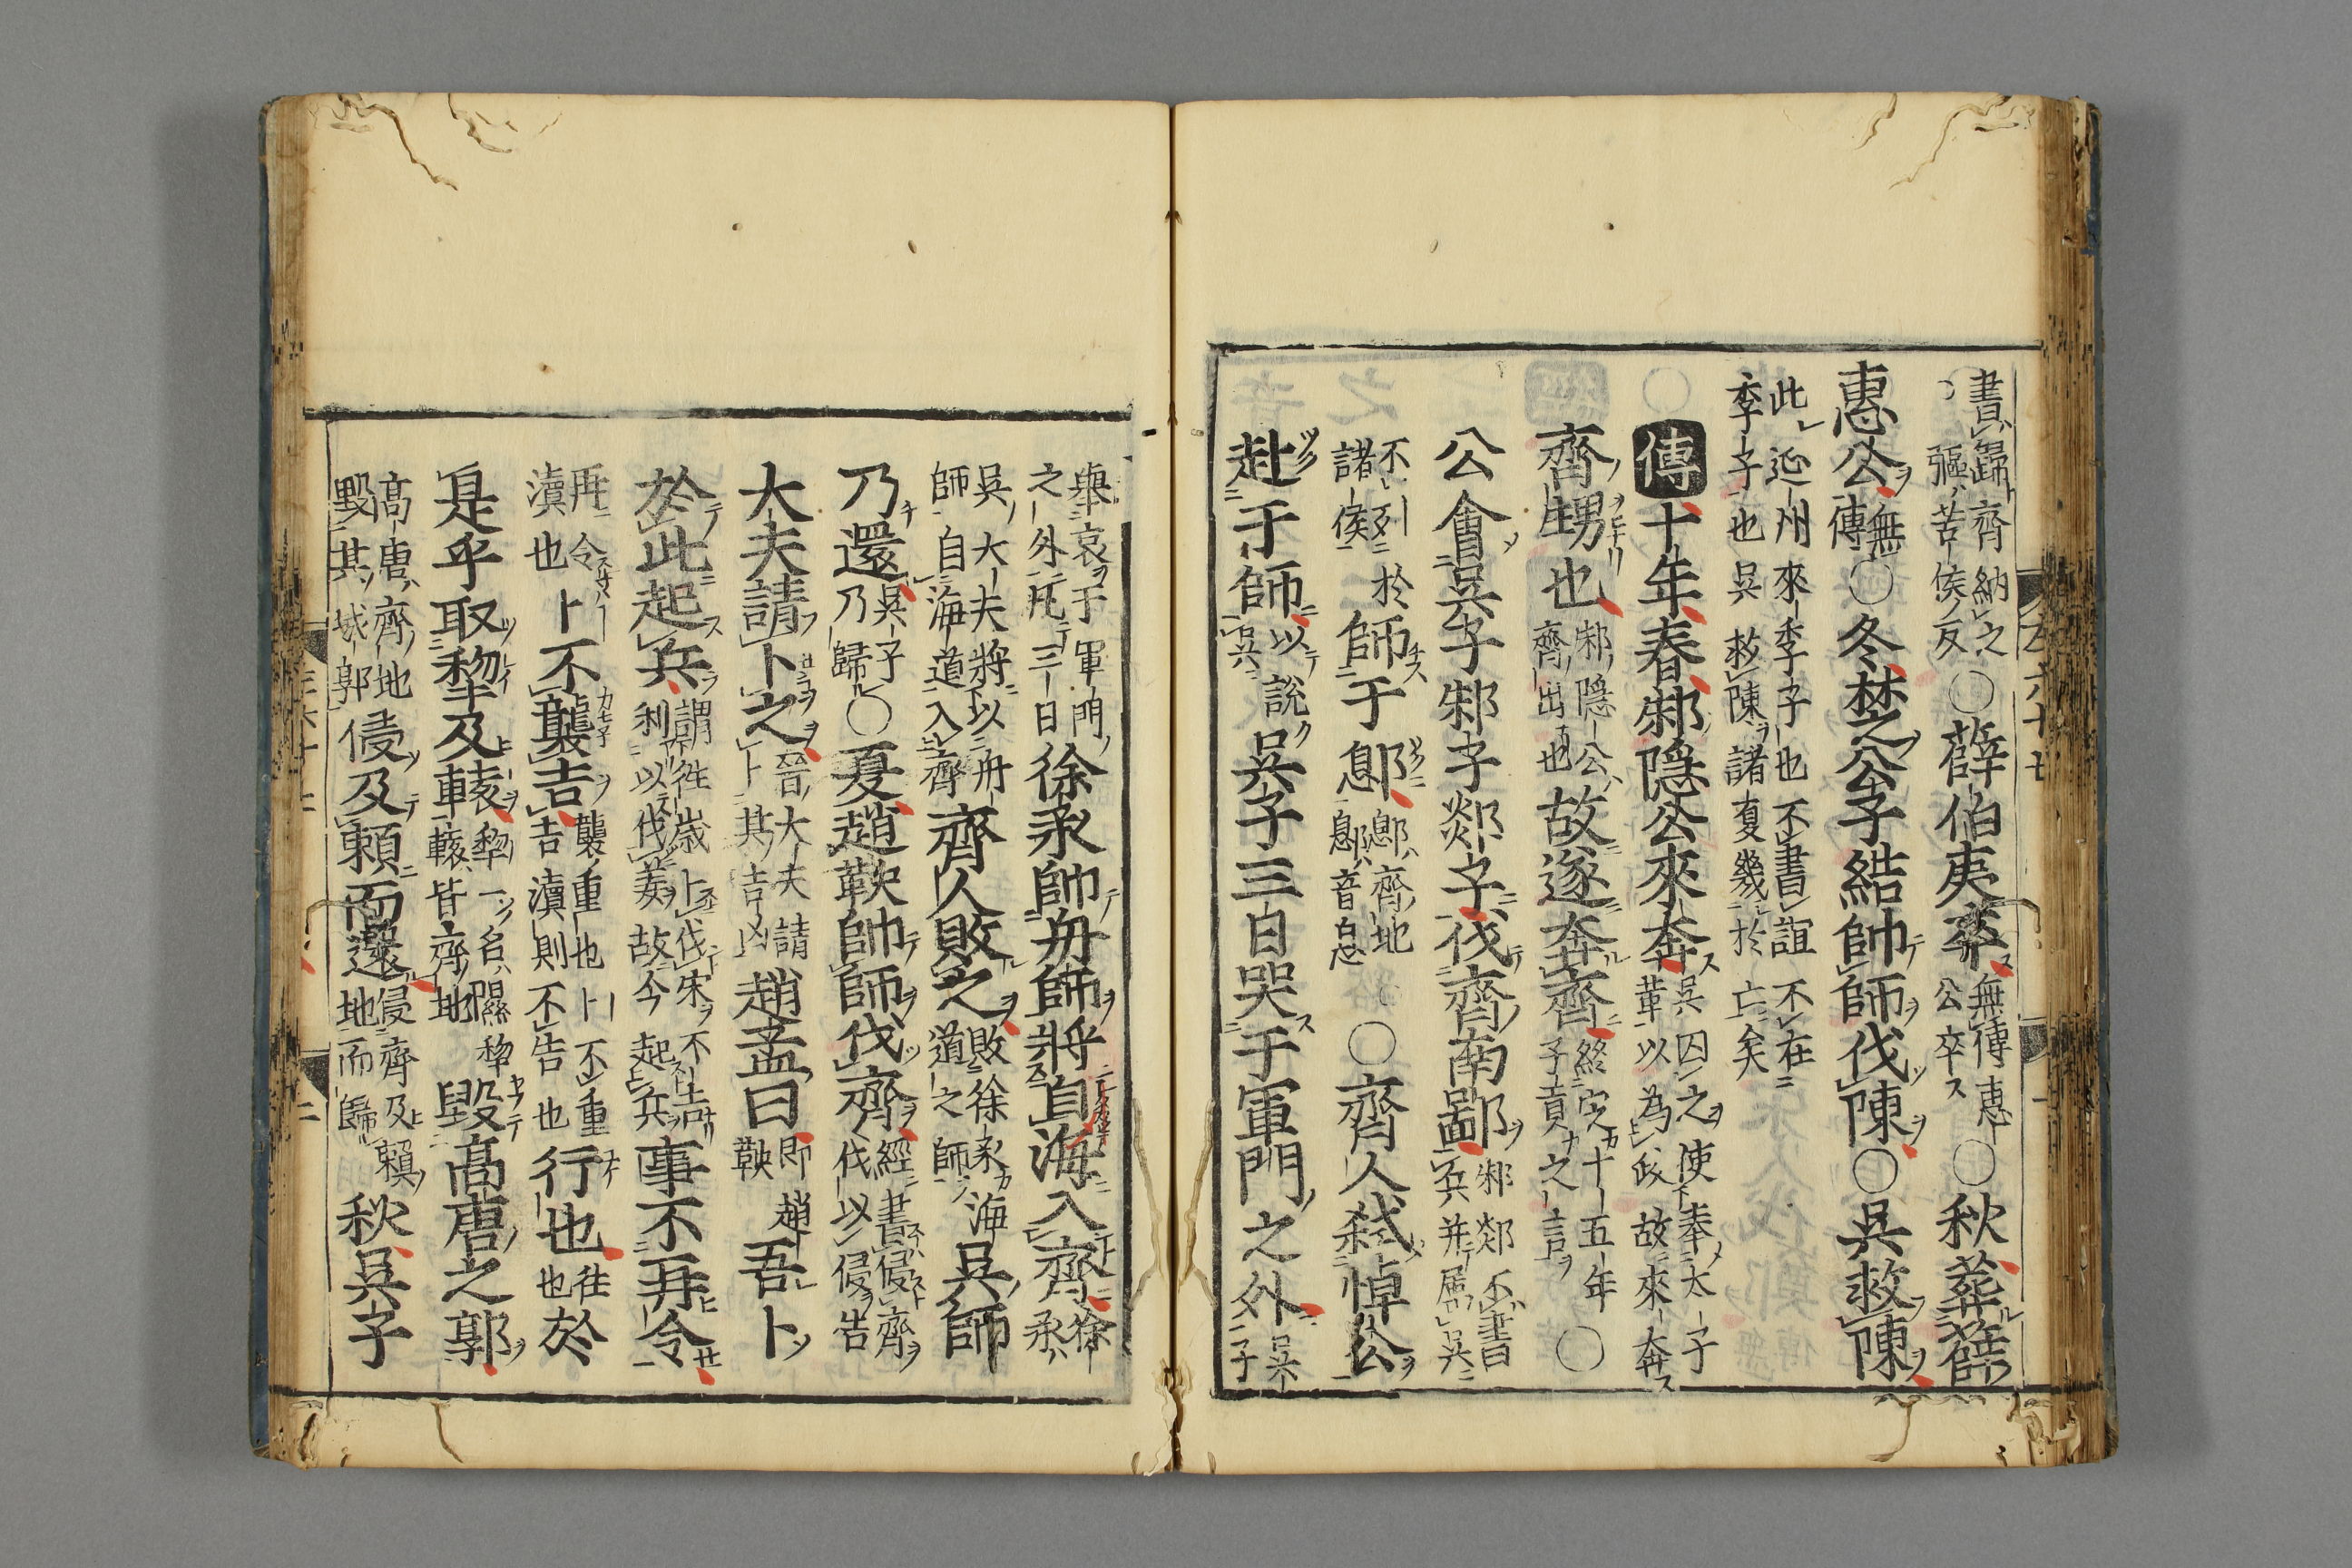 書歸齊納之
彄苦侯反
○薛伯夷卒
無傳惠
公卒
○秋葬薛
惠公
無
傳
○冬楚公子結帥師伐陳○吳救陳
此延州來季子也不書誼不在
季子也吳救陳諸夏幾於亡矣
○
傳十年春邾隱公來奔
吳囚之使奉太子
革以為政故來奔
齊甥也
邾隱公
齊出也
故遂奔齊
終定十五年
子貢之言
○
公會吳子邾子郯子伐齊南鄙
邾郯不書
兵并屬吳
不列於
諸侯
師于鄎
鄎齊地
鄎音息
○齊人弒悼公
赴于師
以說
吳
吳子三日哭于軍門之外
吳
子
舉哀于軍門
之外凡三日
徐承帥舟師將自海入齊
徐
承
吳大夫將以舟
師自海道入齊
齊人敗之
敗徐承海
道之師
吳師
乃還
吳子
乃歸
○夏趙鞅帥師伐齊
經書侵齊
伐以侵告
大夫請卜之
晉大夫請
卜其吉凶
趙孟曰
即趙
鞅
吾卜
於此起兵
謂往歲卜伐宋不吉
利以伐姜故今起兵
事不再令
再令
瀆也
卜不襲吉
襲重也卜不重
吉瀆則不告也
行也
往
也
於
是乎取犂及轅
犂一名隰
轅皆齊地
毀高唐之郭
高唐齊地
毀其城郭
侵及賴而還
侵齊及賴
地而歸
秋吳子